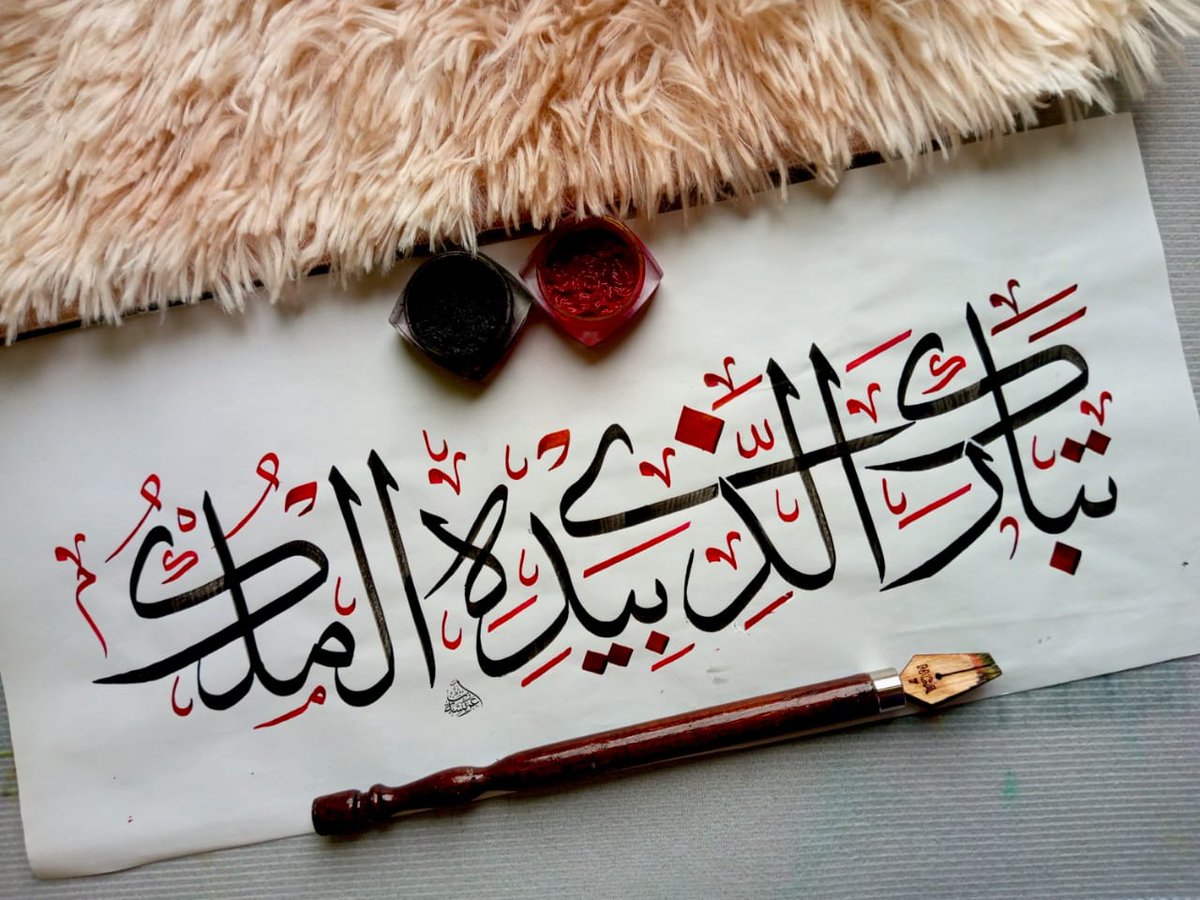 تبارك الذي بيده الملك
HCA
7